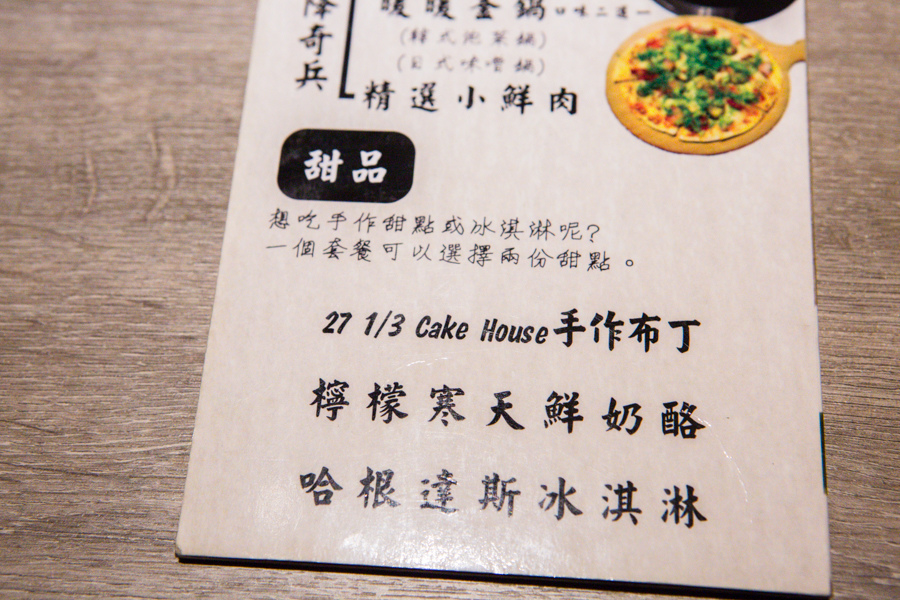 降奇兵
暖暖釜鍋口味二選一
(韓式泡菜鍋)
(日式味噌鍋)
精選小鮮肉
甜品
想吃手作甜點或冰淇淋呢?
一個套餐可以選擇兩份甜點。
27 1/3 Cake House手作布丁
檸檬寒天鮮奶酪
哈根達斯冰淇淋